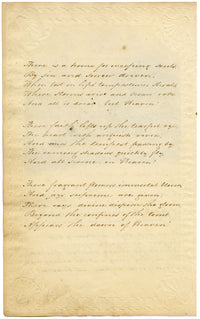 There is a home for weeping souls
By sin and sorrow driven,
When lost on life's tempestuous shoals
Where storms arise and ocean rolls
And all is drear but Heaven

There faith lifts up the tearful eye
The heart with anguish riven,
And views the tempest passing by
The evening shadows quickly fly
And all serene in Heaven!

There fragrant flowers immortal bloom
And joys supreme are given;
There rays divine disperse the gloom
Beyond the confines of the tomb
Appears the dawn of Heaven